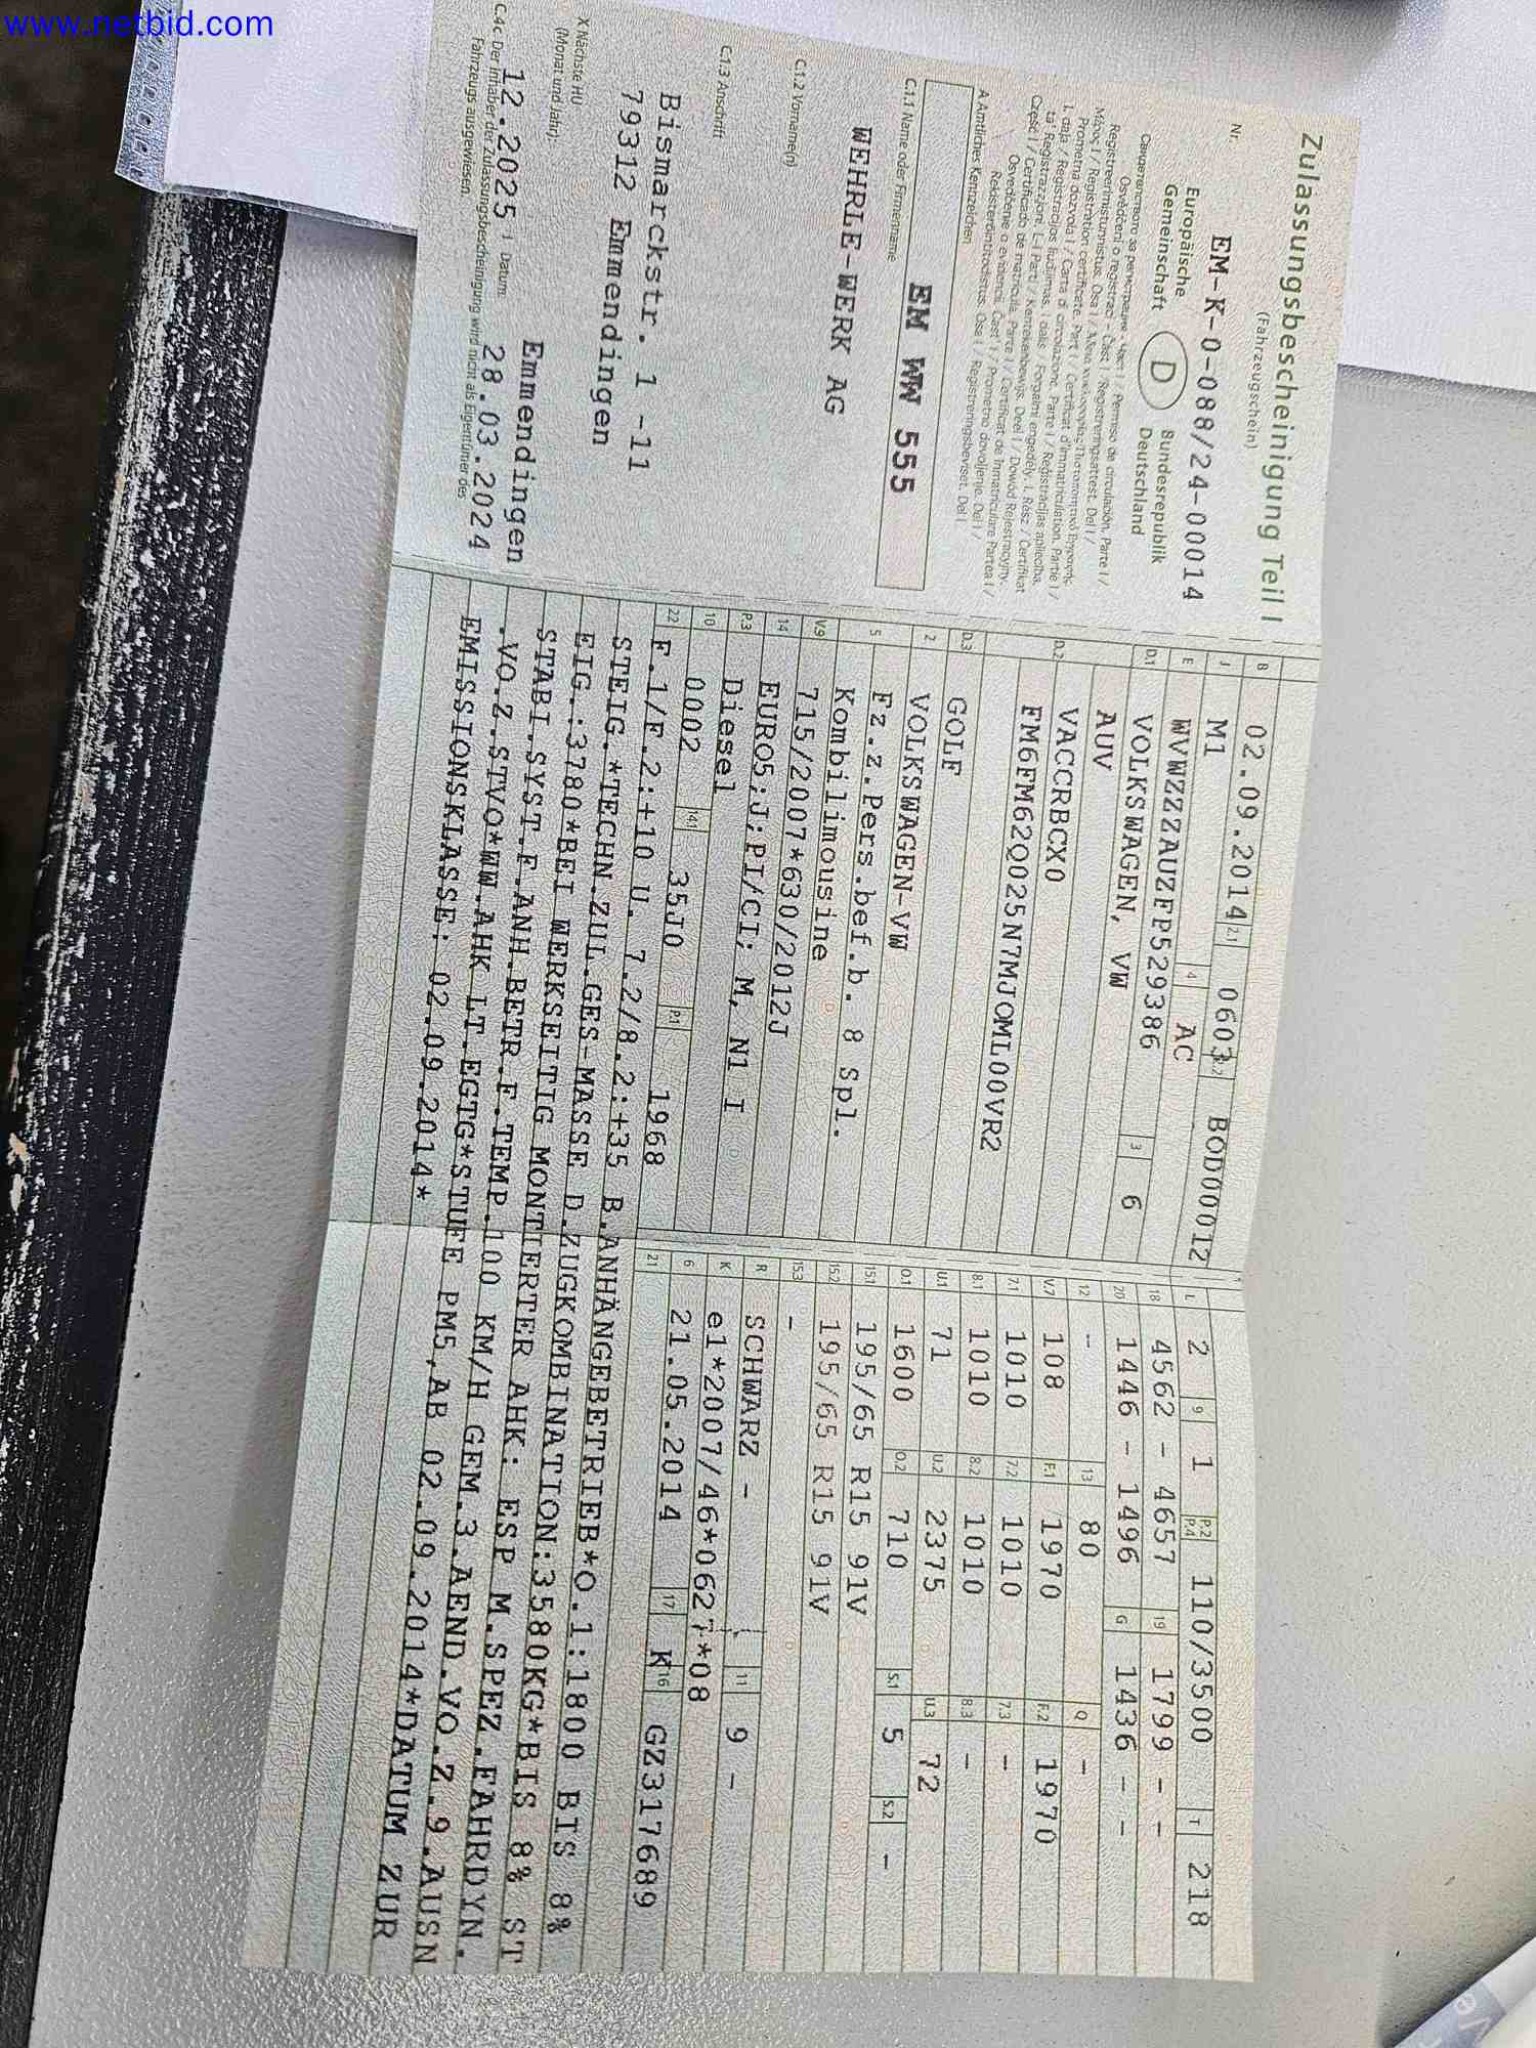 www.netbid.com
Zulassungsbescheinigung Teil I
(Fahrzeugschein)
Nr. EM-K-0-088/24-00014
Europäische Gemeinschaft D Bundesrepublik Deutschland
A Amtliches Kennzeichen
EM WW 555
C.1.1 Name oder Firmenname
WEHRLE-WERK AG
C.1.2 Vorname(n)
C.1.3 Anschrift
Bismarckstr. 1 -11
79312 Emmendingen
X Nächste HU
(Monat und Jahr):
Emmendingen
12.2025 Datum: 28.03.2024
C.4c Der Inhaber der Zulassungsbescheinigung wird nicht als Eigentümer des
Fahrzeugs ausgewiesen.
B 02.09.2014 2.1 0603 2.2 BOD00012
J M1 4 AC
E WVWZZZAUZFP529386 3 6
D.1 VOLKSWAGEN, VW
AUV
D.2 VACCRBCX0
FM6FM62Q025N7MJOML00VR2
D.3 GOLF
2 VOLKSWAGEN-VW
5 Fz.z.Pers.bef.b. 8 Spl.
Kombilimousine
V.9 715/2007*630/2012J
14 EURO5;J;PI/CI; M, N1 I
P.3 Diesel
10 0002 14.1 35J0 P.1 1968
L 2 9 1 P.2 P.4 110/3500 T 218
18 4562 - 4657 19 1799 - -
20 1446 - 1496 G 1436 - -
12 - 13 80 Q -
V.7 108 F.1 1970 F.2 1970
7.1 1010 7.2 1010 7.3 -
8.1 1010 8.2 1010 8.3 -
U.1 71 U.2 2375 U.3 72
O.1 1600 O.2 710 S.1 5 S.2 -
15.1 195/65 R15 91V
15.2 195/65 R15 91V
15.3 -
R SCHWARZ - 11 9 -
K e1*2007/46*0627*08
6 21.05.2014 17 K 16 GZ317689
21
22 F.1/F.2:+10 U. 7.2/8.2:+35 B.ANHÄNGEBETRIEB*O.1:1800 BIS 8%
STEIG.*TECHN.ZUL.GES-MASSE D.ZUGKOMBINATION:3580KG*BIS 8% ST
EIG.:3780*BEI WERKSEITIG MONTIERTER AHK: ESP M.SPEZ.FAHRDYN.
STABI.SYST.F.ANH.BETR.F.TEMP.100 KM/H GEM.3.AEND.VO.Z.9.AUSN
.VO.Z.STVO*WW.AHK LT.EGTG*STUFE PM5,AB 02.09.2014*DATUM ZUR
EMISSIONSKLASSE: 02.09.2014*